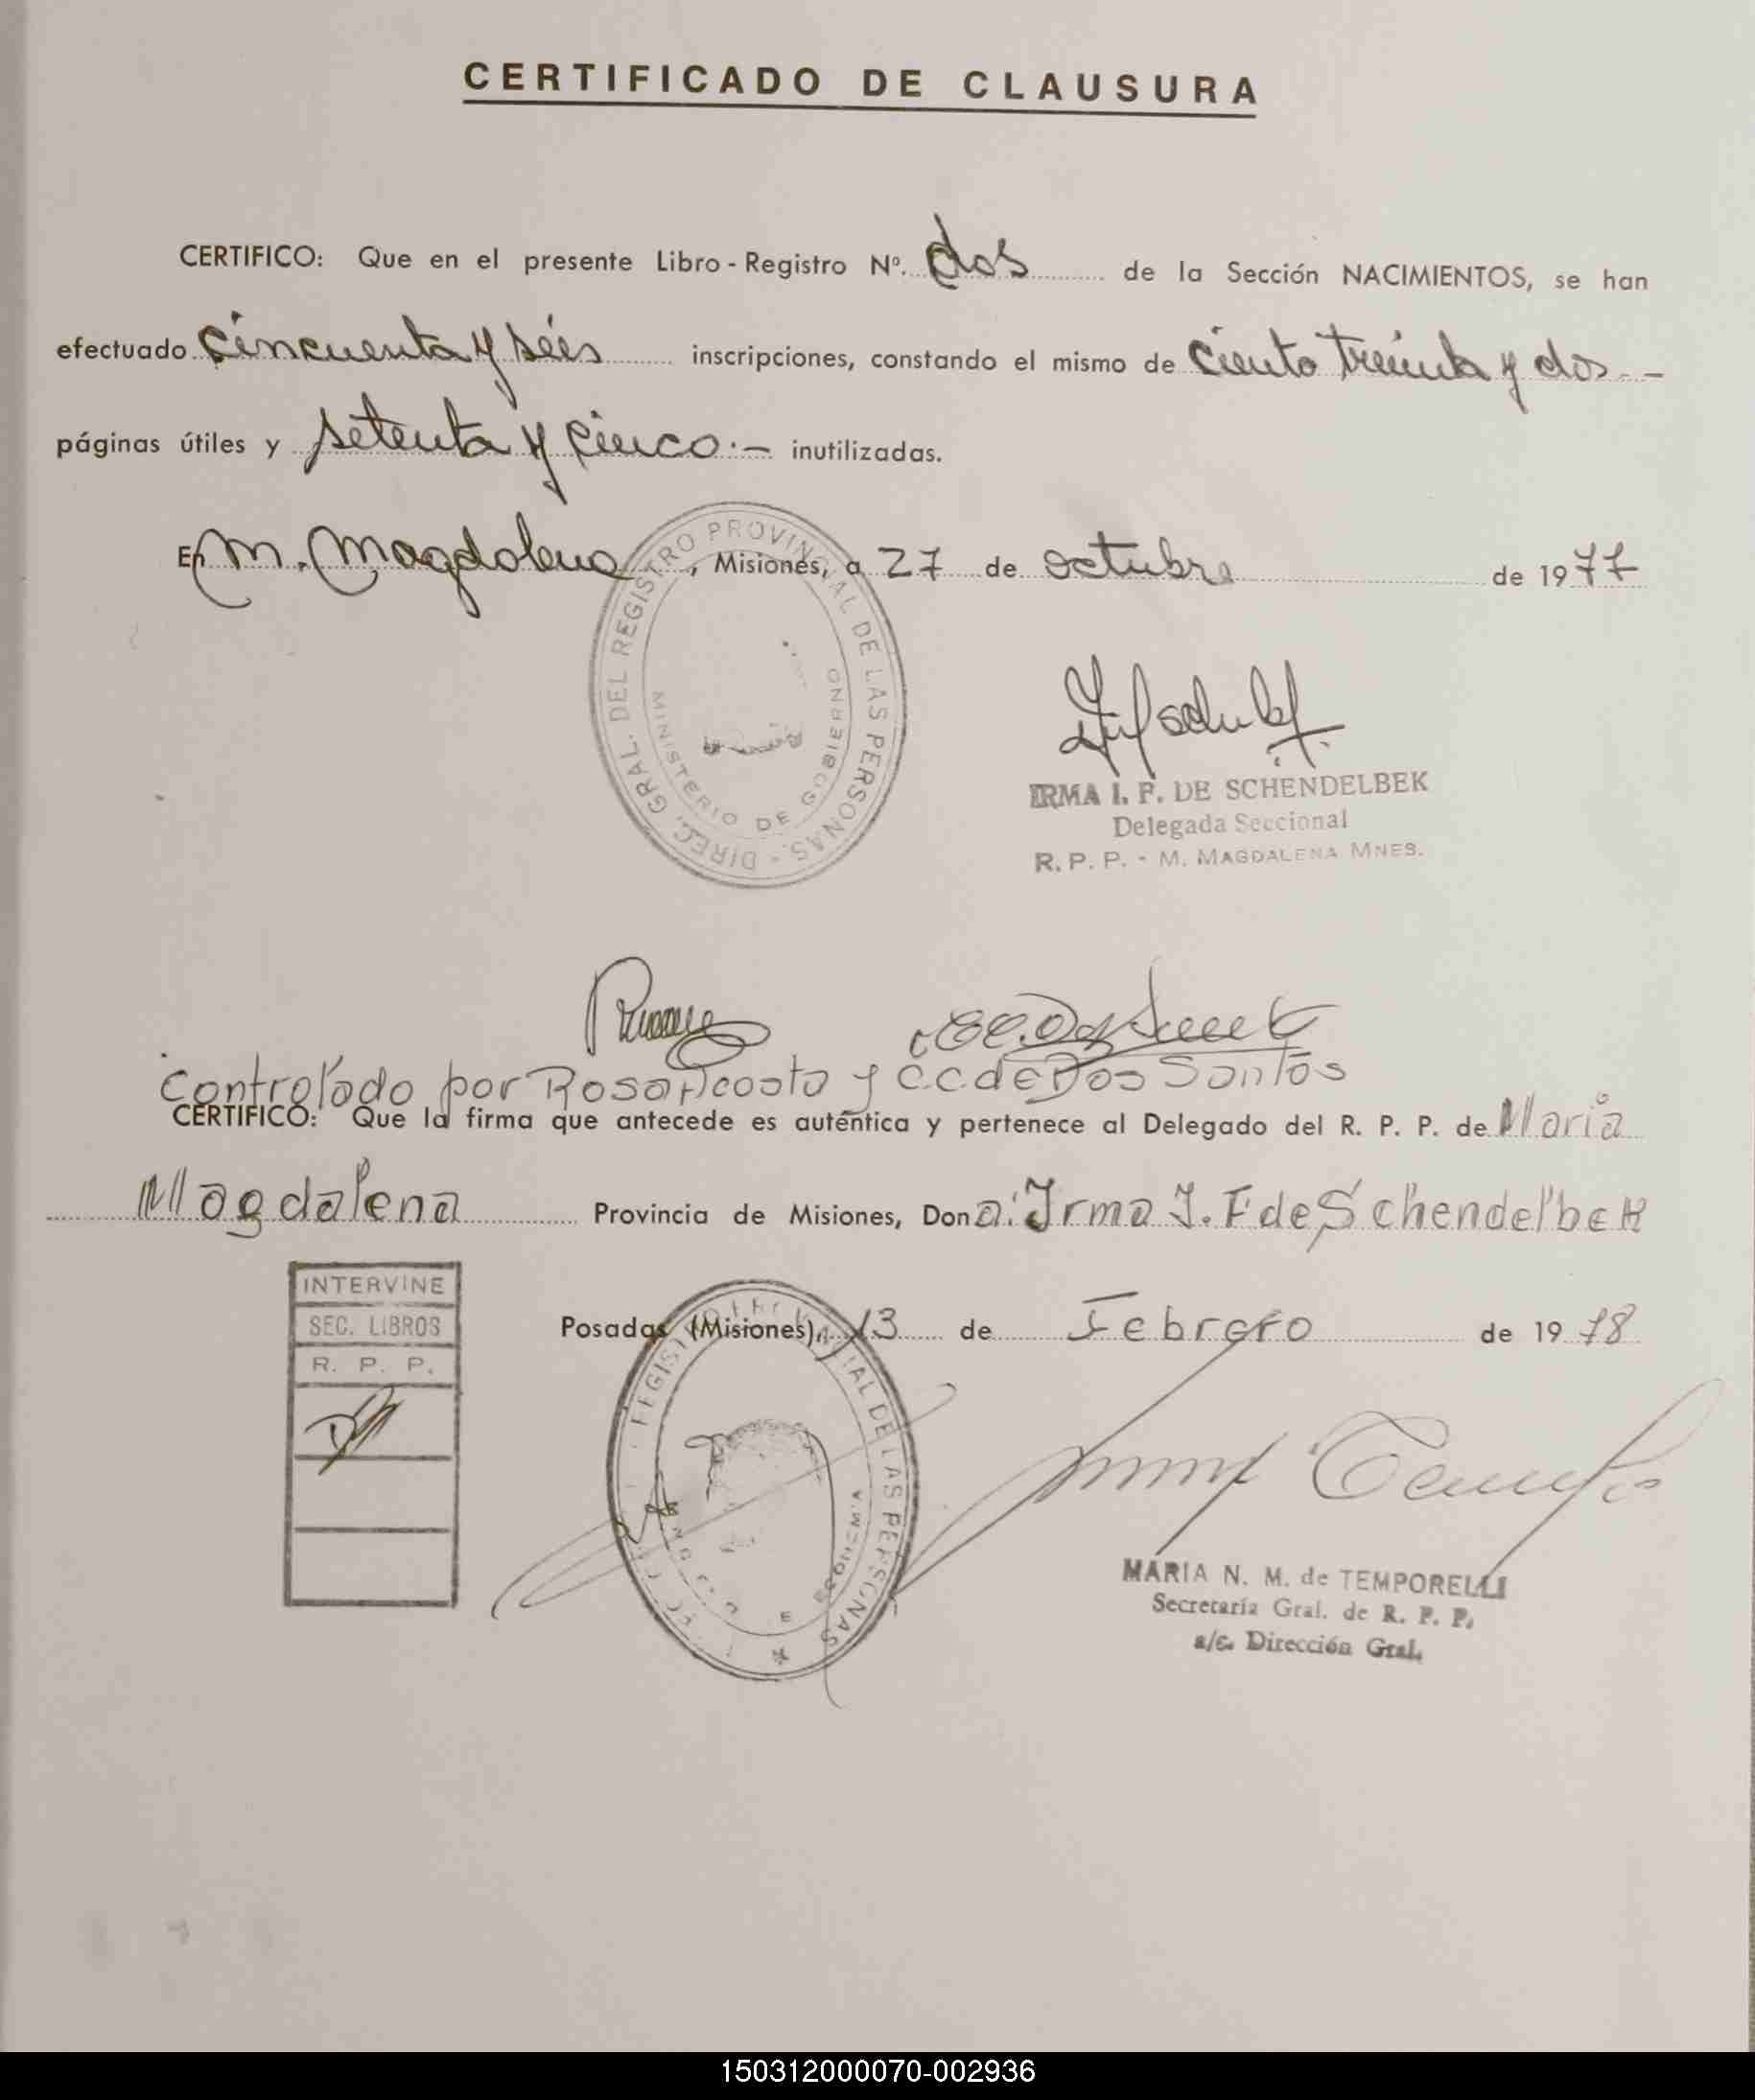 CERTIFICADO DE CLAUSURA
CERTIFICO: Que en el presente Libro-Registro Nº. dos de la Sección NACIMIENTOS, se han
efectuado cincuenta y séis inscripciones, constando el mismo de ciento treinta y dos.-
páginas útiles y setenta y cinco.- inutilizadas.
En M. Magdalena, Misiones, a 27 de octubre de 1977
DIREC. GRAL. DEL REGISTRO PROVINCIAL DE LAS PERSONAS.-
MINISTERIO DE GOBIERNO
IRMA I. F. DE SCHENDELBEK
Delegada Seccional
R. P. P. - M. MAGDALENA MNES.
Controlado por Rosa Acosta y C.C. de Dos Santos
CERTIFICO: Que la firma que antecede es auténtica y pertenece al Delegado del R. P. P. de Maria
Magdalena Provincia de Misiones, Dona: Irma I. F de Schendelbek
INTERVINE
SEC. LIBROS
R. P. P.
Posadas (Misiones), 13 de Febrero de 1978
DE LAS PERSONAS
MARIA N. M. de TEMPORELLI
Secretaría Gral. de R. P. P.
a/c. Dirección Gral.
150312000070-002936